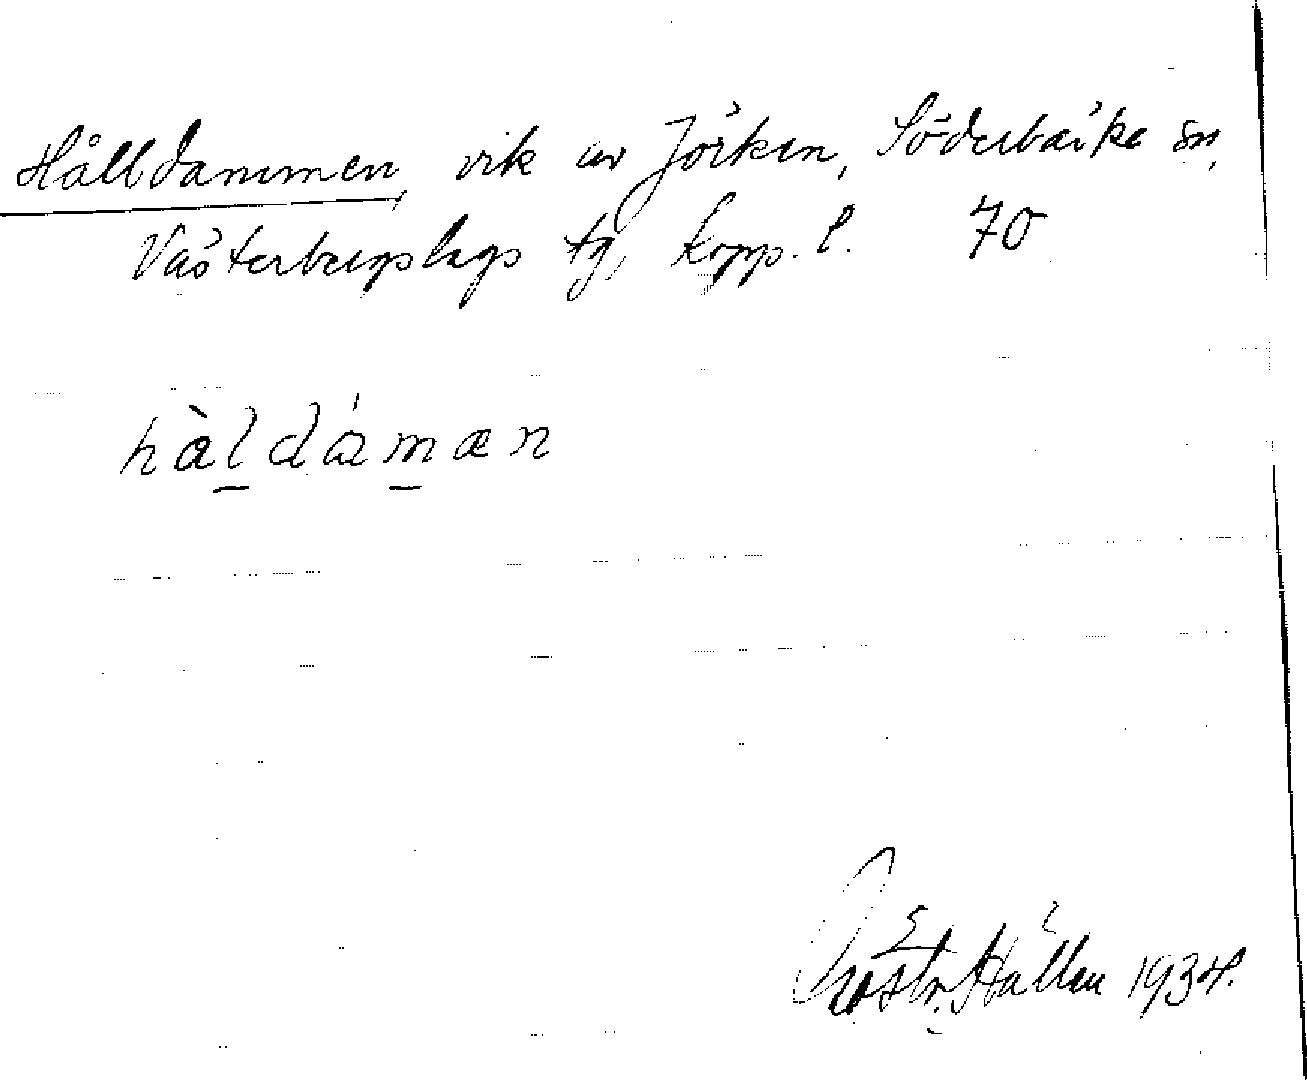 Hålldammen, vik av Jörken, Söderbärke sn,
Västerbergslags tg, Kopp. l. 70
hàldámæn
Hållen 1934.